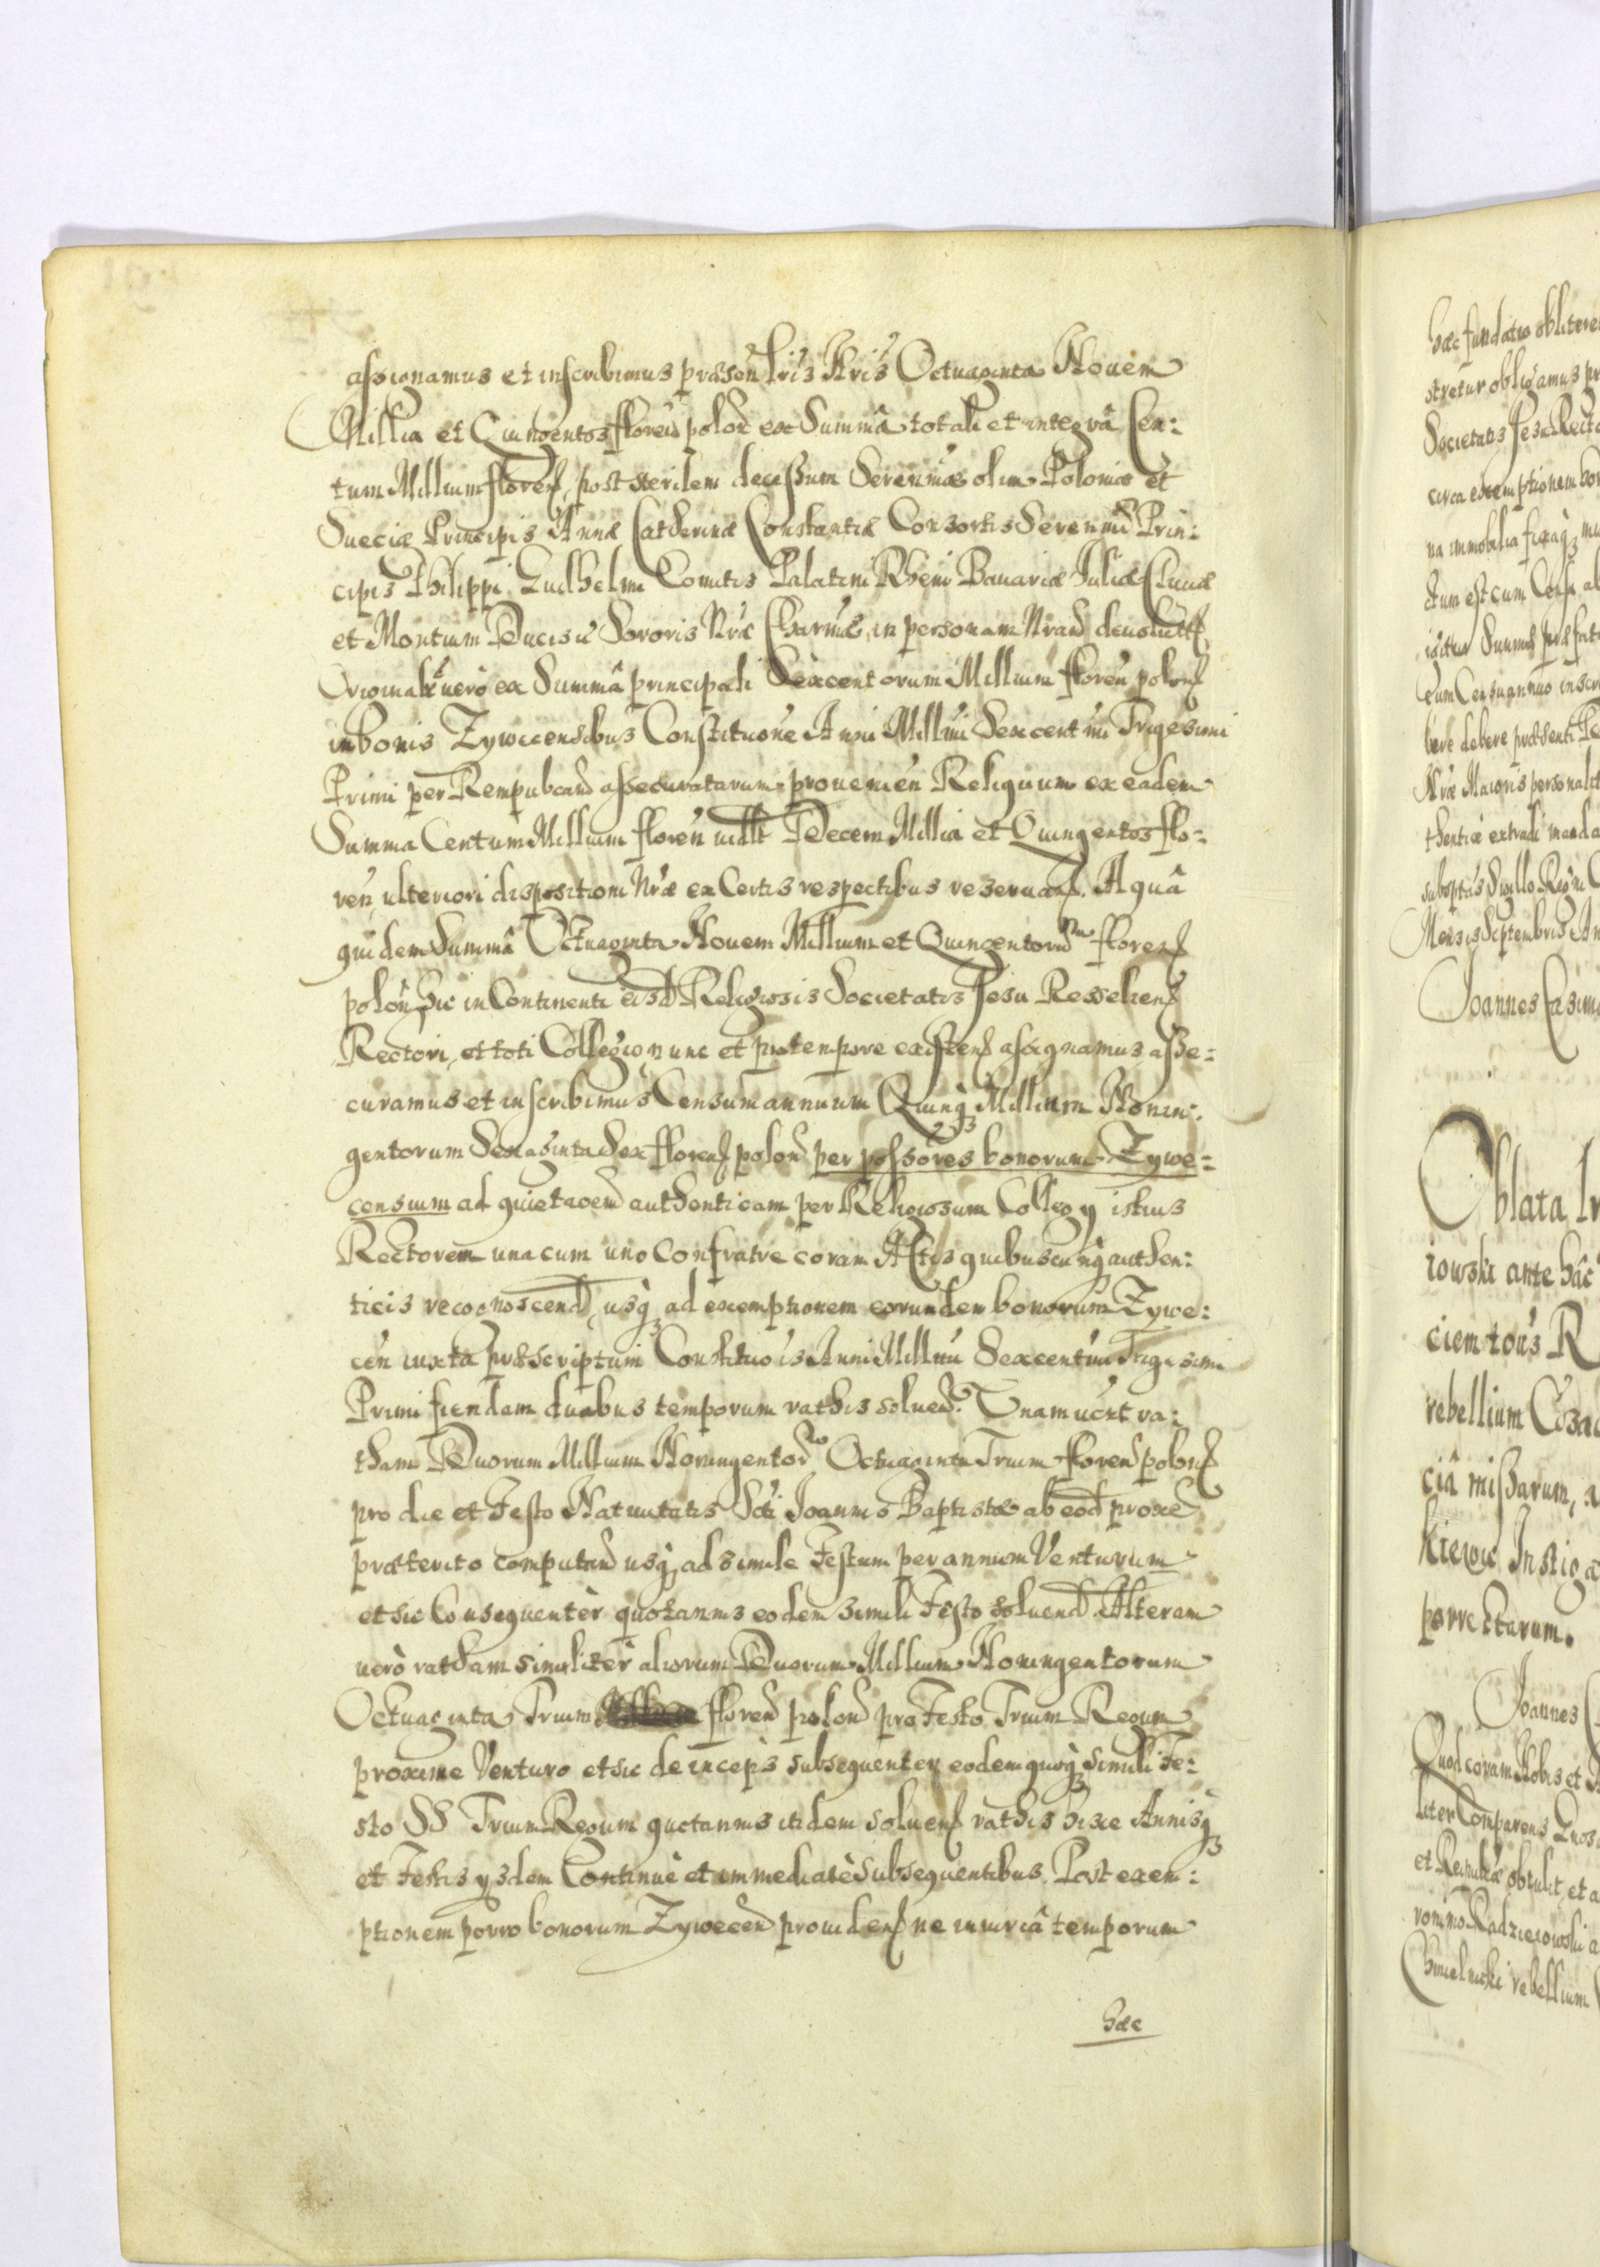 assignamus et inscribimus præsen Lris Nris Octuaginta Nouem
Millia et Quingentos floren polon ex Summâ totali et integrâ Cen:
tum Millium floren, post sterilem decessum Serenmæ olim Poloniæ et
Sueciæ Principis Annæ Catherinæ Constantiæ Consortis Serenmi Prin:
cipis Philippi Guilhelmi Comitis Palatini Rheni Bauariæ Iuliæ Cliuiæ
et Montium Ducis Sororis Nræ Charmæ, in personam Nram deuolut
Originalr uerò ex Summâ principali Sexcentorum Millium floren polon
in bonis Zywecensibus Constituone Anni Millmi Sexcentmi Trigesimi
Primi per Rempubcam assecuratarum prouenien Reliquum ex eadem
Summa Centum Millium floren uidlt Decem Millia et Quingentos flo:
ren, ulteriori dispositioni Nræ ex Certis respectibus reseruan. A quâ
quidem Summâ Octuaginta Nouem Millium et Quingentorum floren
polon hic in Continenti eisd Religiosis Societatis Jesu Resselien
Rectori, et toti Collegio nunc et pro tempore existen assignamus asse:
curamus et inscribimus Censum annuum Quinq3 Millium Nonin:
gentorum Sexaginta Sex floren polon per possores bonorum Zywe:
censium ad quietaoem authenticam per Religiosum Collegy istius
Rectorem una cum uno Confratre coram Actis quibuscunq authen:
ticis recognoscend, usq3 ad exemptionem eorundem bonorum Zywe:
cen iuxta præscriptum Constituois Anni Millmi Sexcentmi Trigesimi
Primi fiendam duabus temporum rathis soluen. Unam uert ra:
tham Duorum Millium Noningentor Octuaginta Trium floren polon
pro die et Festo Natiuitatis Scti Joannis Baptistæ ab eod proxe
præterito computan usq3 ad simile Festum per annum Venturum
et sic Consequentèr quotannis eodem simili Festo soluend. Alteram
uerò ratham similitèr aliorum Duorum Millium Noningentorum
Octuaginta Trium floren polon pro Festo Trium Regum
proxime Venturo et sic deinceps subsequenter eodemquoq3 simili Fe:
sto SS Trium Regum quotannis itidem soluen rathis hisce Annisq3
et Festis ysdem Continuè et immediatè subsequentibus. Post exem:
ptionem porro bonorum Zywecen prouiden ne iniuriâ temporum
hæc
hæc fundatio obliterè
stretur obligamus
Societatis Jesu Recto
circa exemptionem bo
na immobilia fixaq3
ctum est cum Censu
igitur Summæ
cum Censu annuo inscri
bere debere præsenti
Nræ Maioris
thenticè extradi manda
Sigillo Regni
Mensis Septembris An
Joannes Casim
Oblata
iowski ante hâc
ciem totius R
rebellium Coza
ciâ missarum,
kiewic Instiga
porrectarum.
Joannes
Quod coram Nobis et
liter Comparens
et obtulit, et a
Radzieiowski a
Chmielnicki rebellium